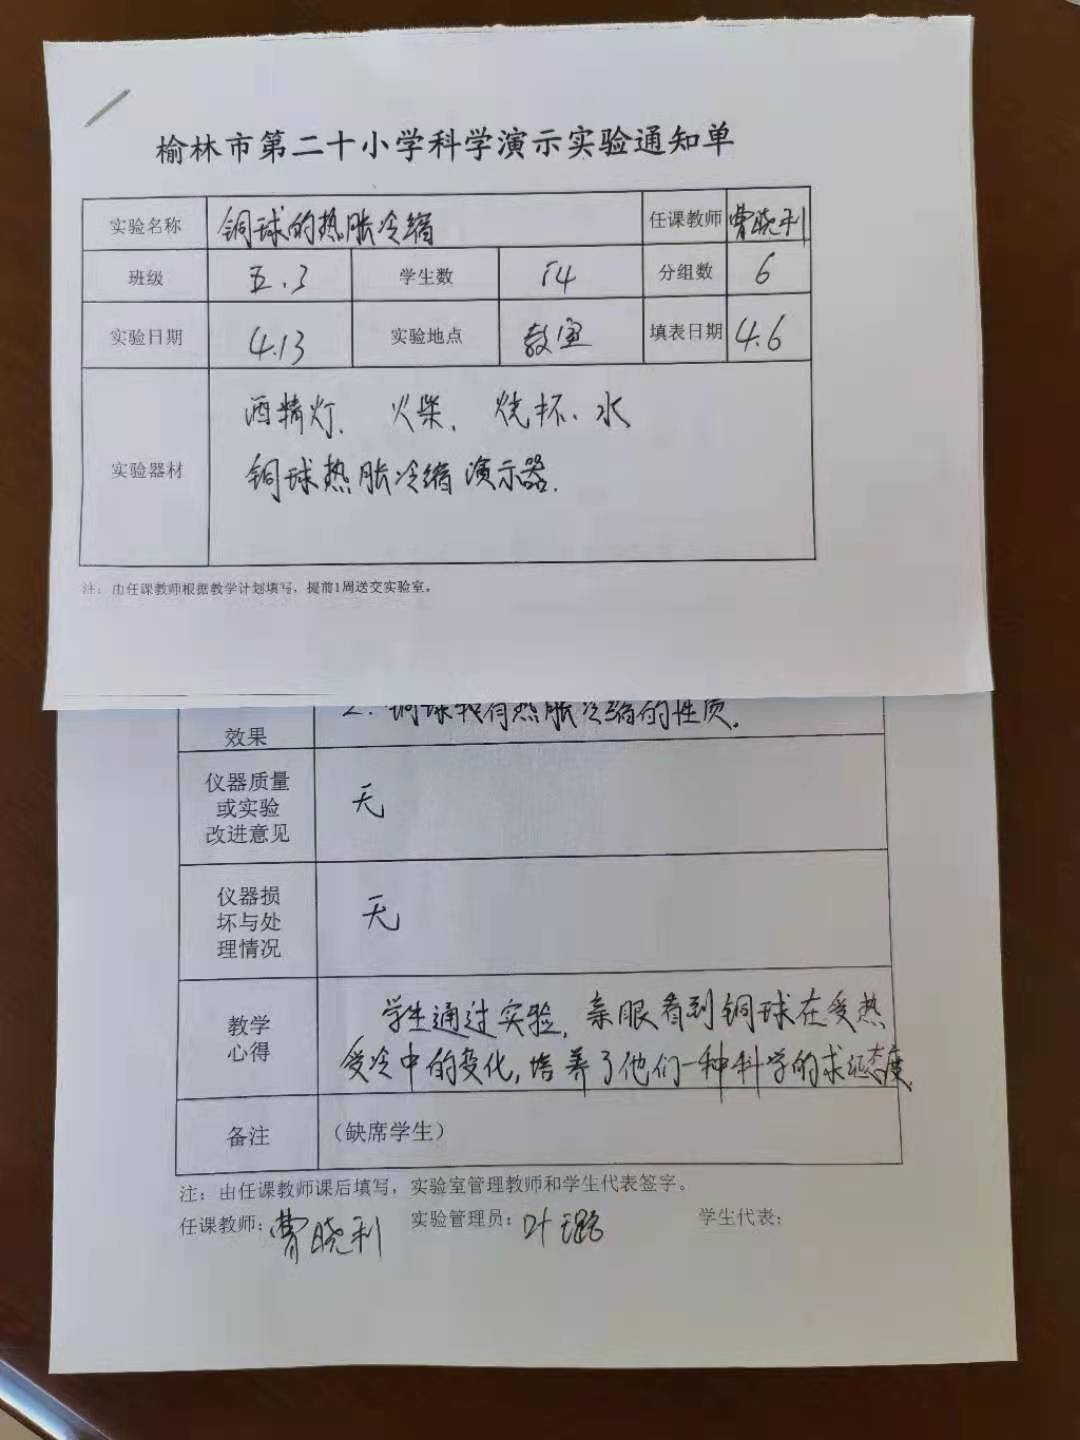 榆林市第二十小学科学演示实验通知单
实验名称 铜球的热胀冷缩 任课教师 曹晓利
班级 五.3 学生数 54 分组数 6
实验日期 4.13 实验地点 教室 填表日期 4.6
实验器材 酒精灯、火柴、烧杯、水
铜球热胀冷缩演示器.
注：由任课教师根据教学计划填写，提前1周送交实验室。
效果 2. 铜球具有热胀冷缩的性质.
仪器质量
或实验
改进意见
无
仪器损
坏与处
理情况
无
教学
心得
学生通过实验，亲眼看到铜球在受热
受冷中的变化，培养了他们一种科学的求证态度.
备注 （缺席学生）
注：由任课教师课后填写，实验室管理教师和学生代表签字。
任课教师：曹晓利 实验管理员：叶璐 学生代表：